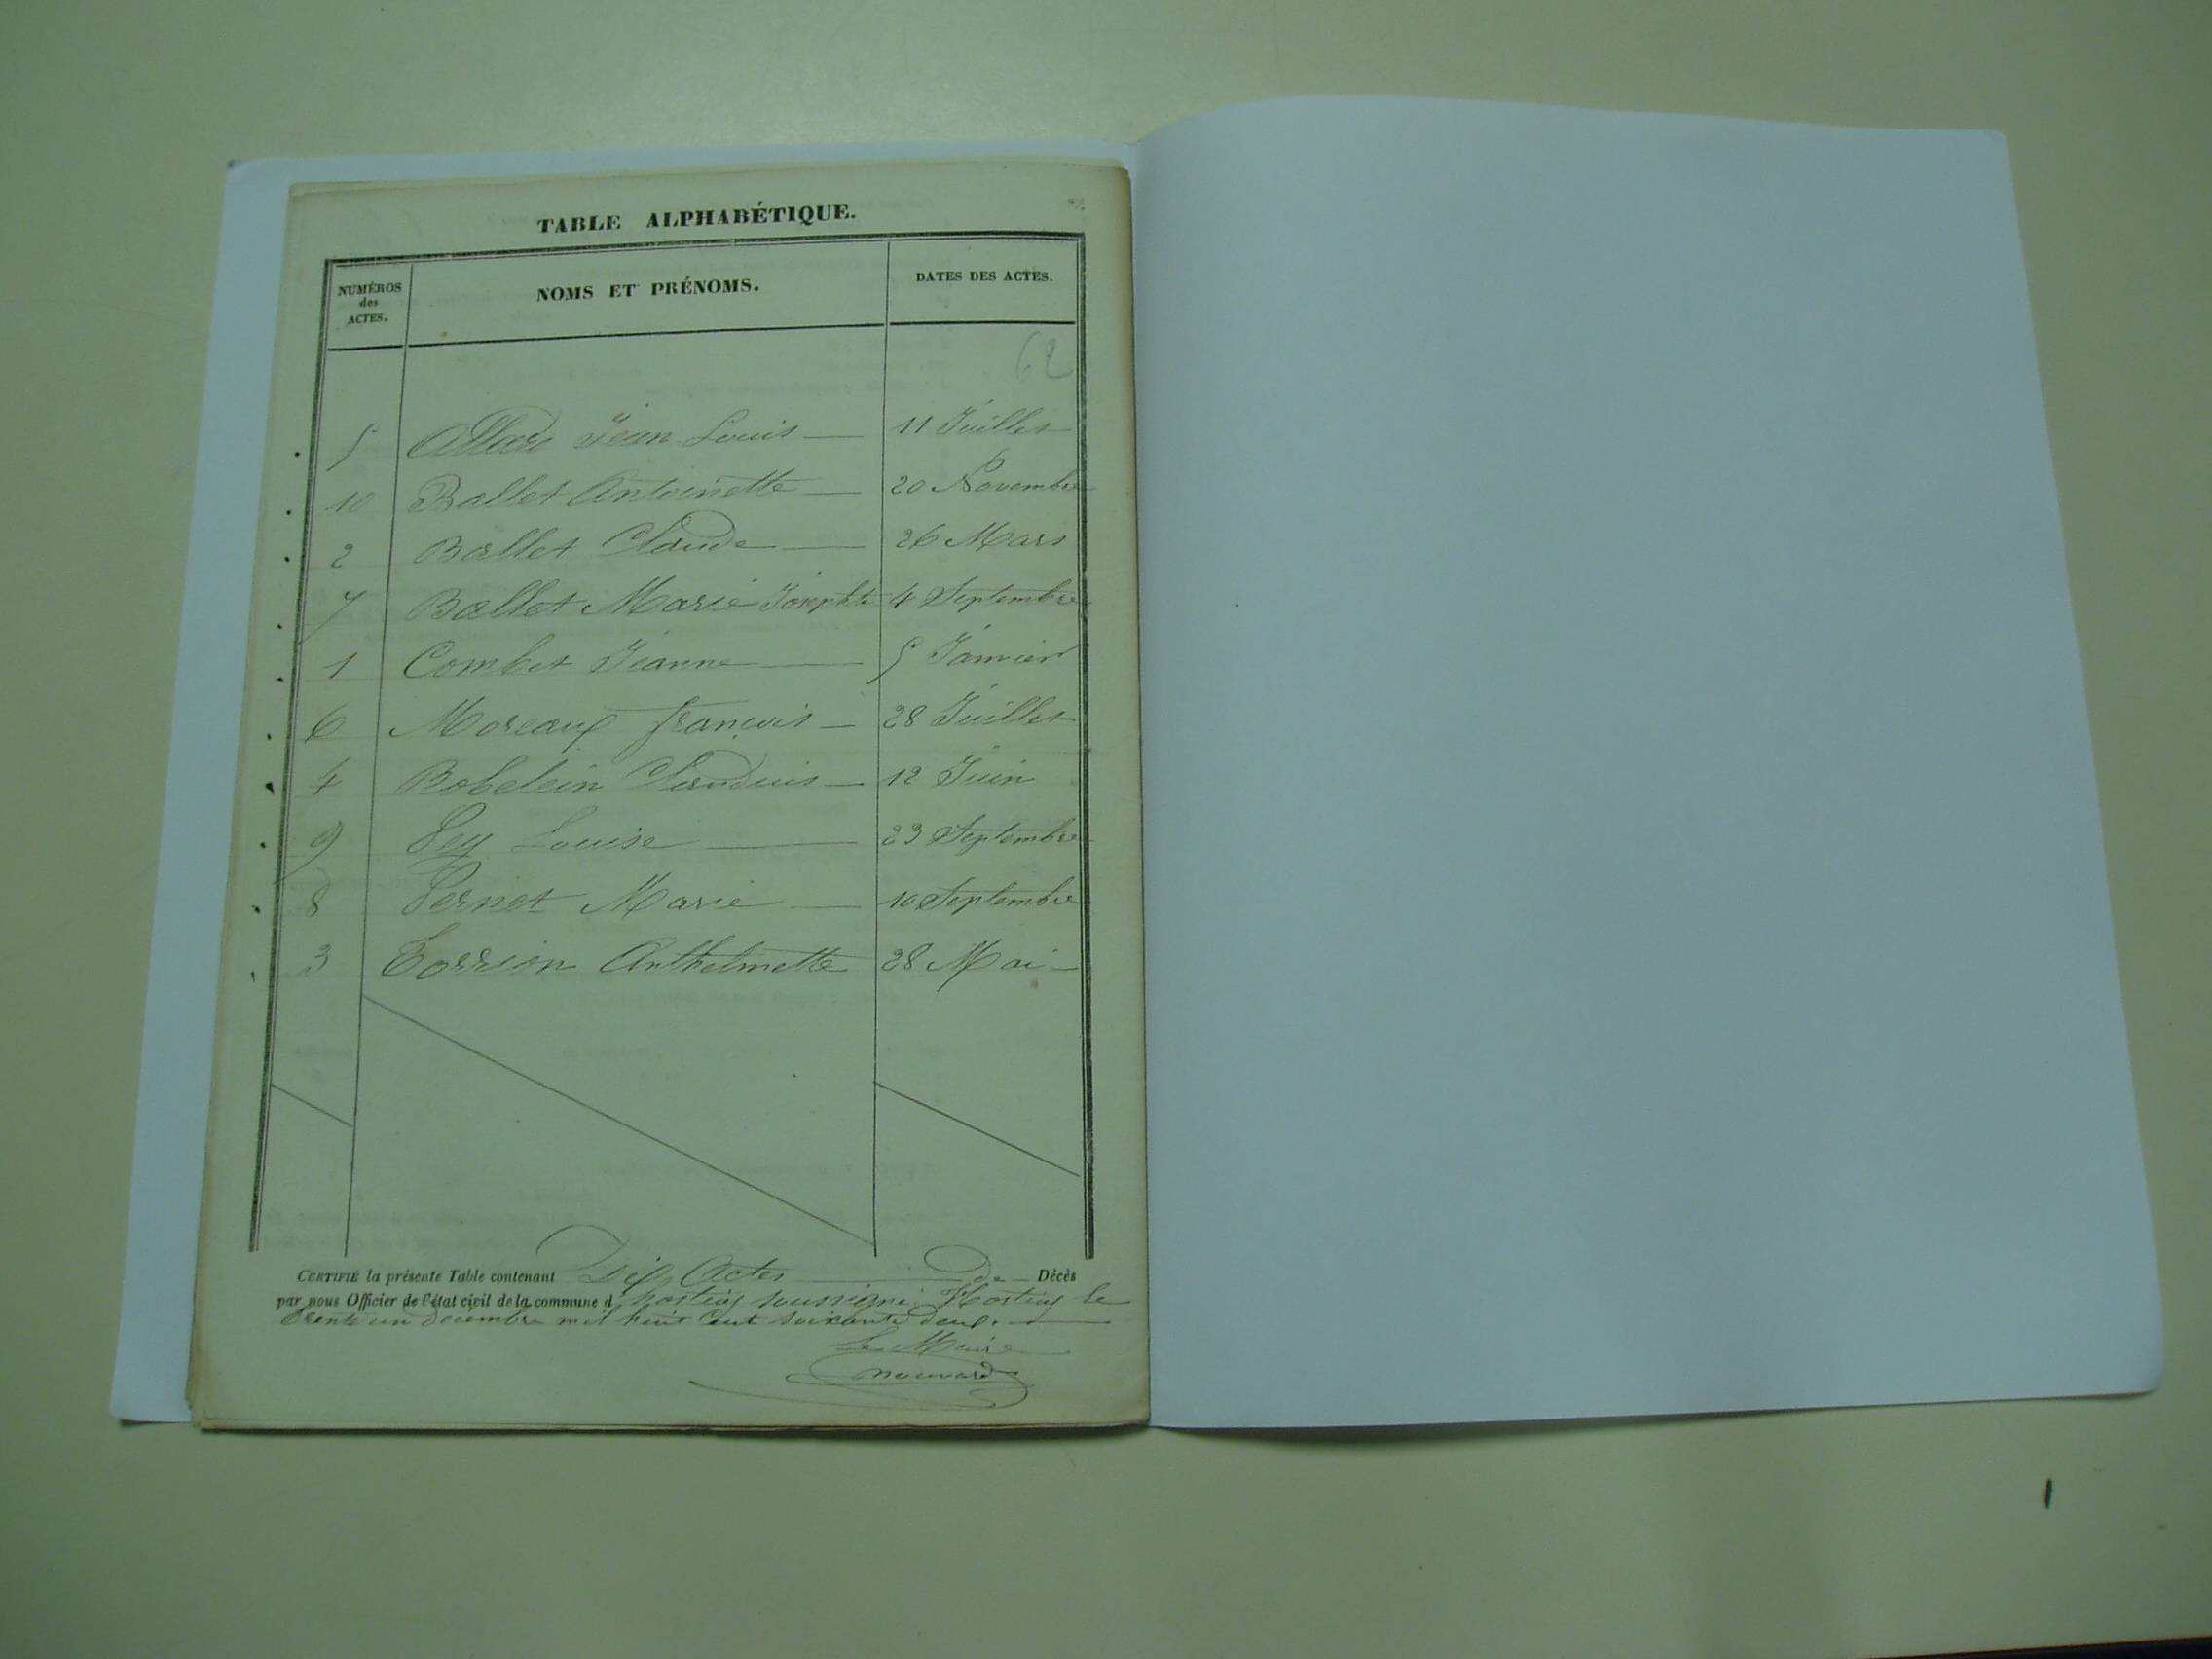 TABLE ALPHABÉTIQUE.
NUMÉROS des ACTES. NOMS ET PRÉNOMS. DATES DES ACTES.
62
5 Jean Louis 11 Juillet
10 Ballet Antoinette 20 Novembre
2 Ballet Claude 26 Mars
7 Ballet Marie Josephte 4 Septembre
1 Combet Jeanne 5 Janvier
6 Moreaux francois 28 Juillet
4 Robelein Claudius 12 Juin
9 Louise 23 Septembre
8 Marie 10 Septembre
3 Torrion Anthelmette 28 Mai
CERTIFIÉ la présente Table contenant Dix Actes de Décès
par nous Officier de l'état civil de la commune d soussigné le
trente un décembre mil huit Cent soixante deux.
Le Maire